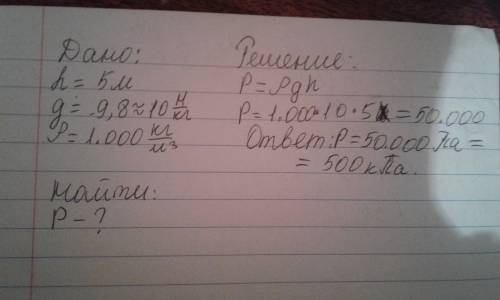 Дано:
h = 5м
g = 9,8 ≈ 10 Н/кг
ρ = 1.000 кг/м³
Найти:
P - ?
Решение:
P = ρgh
P = 1.000 · 10 · 5 = 50.000
Ответ: P = 50.000 Па =
= 500 кПа.